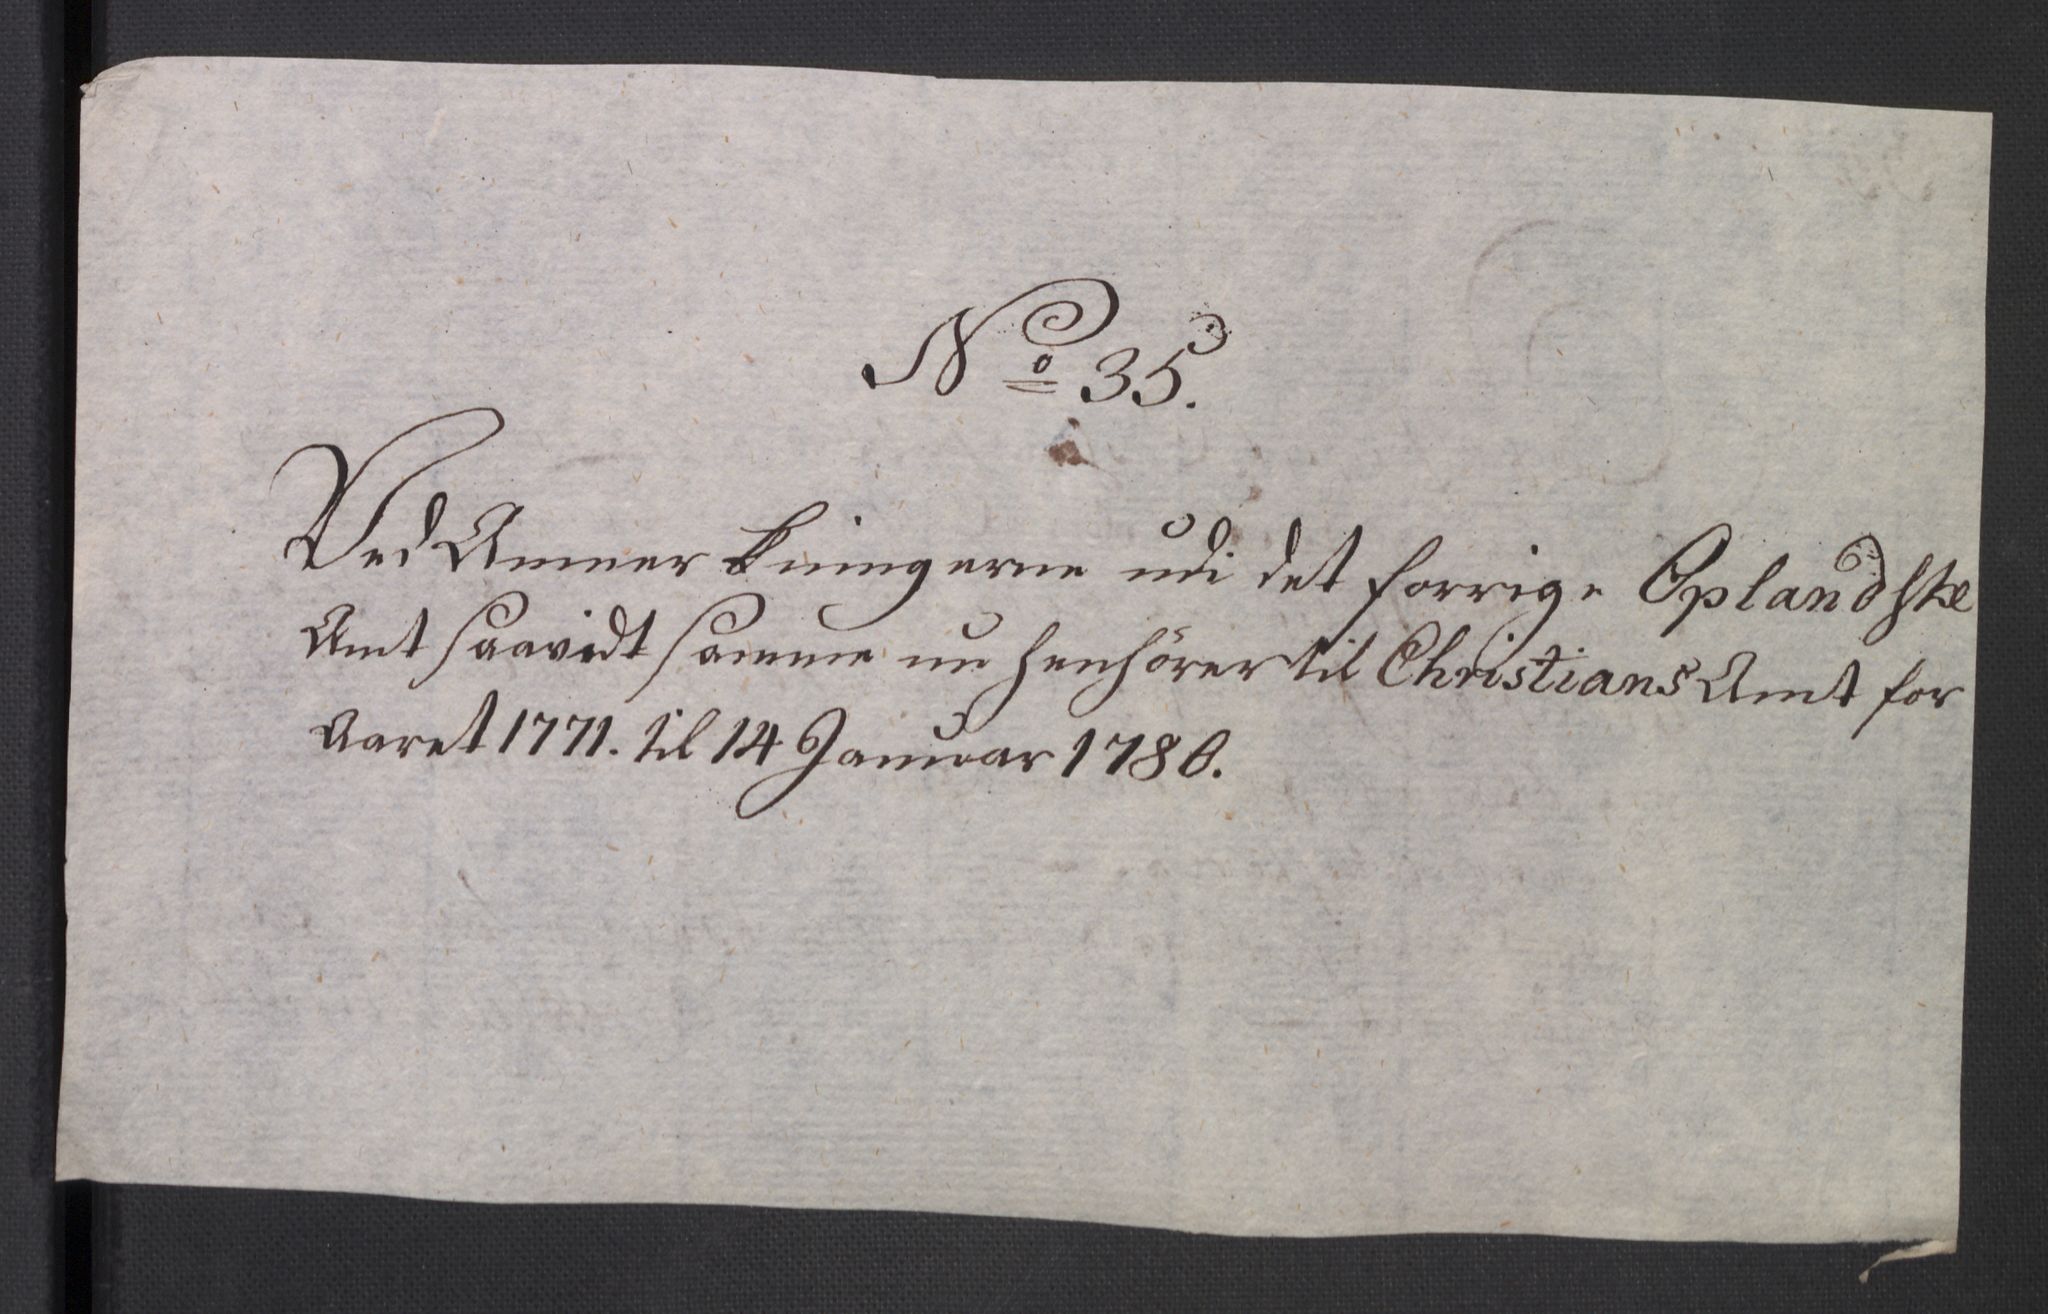 No 35.
Ved Anmerkningerne udi det forrige Oplandske
Amt saavidt samme nu henhörer til Christians Amt for
Aaret 1771. til 14 Januar 1780.